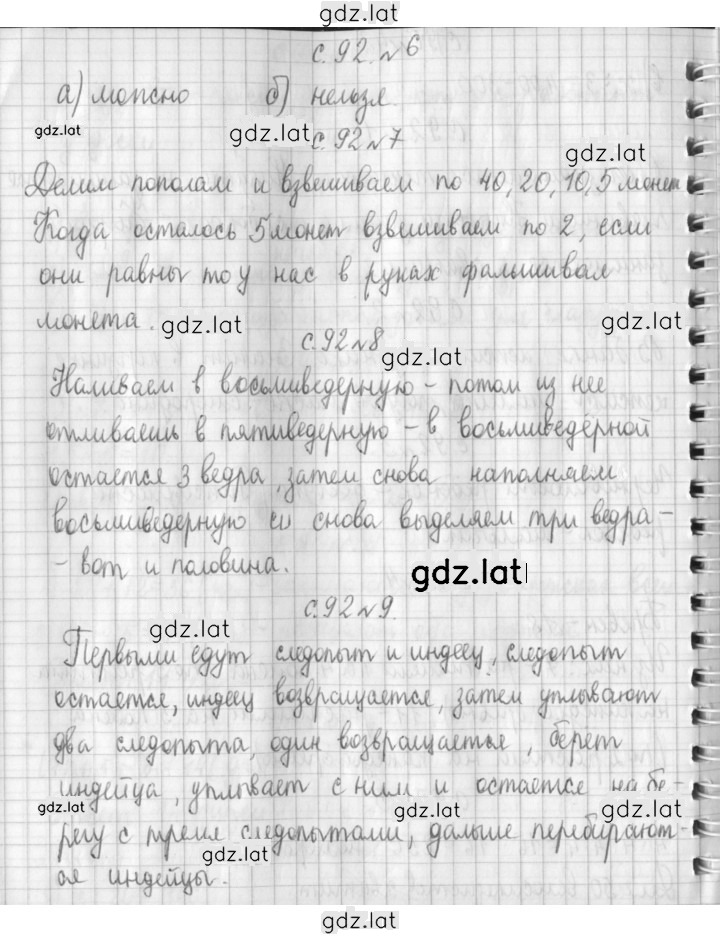 gdz.lat
с.92.№6
а) можно б) нельзя.
gdz.lat gdz.lat
с.92№7
gdz.lat
Делим пополам и взвешиваем по 40,20,10,5 монет
Когда осталось 5 монет взвешиваем по 2, если
они равны то у нас в руках фальшивая
монета. gdz.lat gdz.lat
с.92№8 gdz.lat
Наливаем в восьмиведерную – потом из нее
отливаешь в пятиведерную – в восьмиведёрной
остается 3 ведра, затем снова наполняем
восьмиведерную и снова выделяем три ведра –
– вот и половина. gdz.lat
с.92№9.
gdz.lat
Первыми едут следопыт и индеец, следопыт
остается, индеец возвращается, затем уплывают
два следопыта, один возвращаеться, берет
индейца, уплывает с ним и остаётся на бе-
gdz.lat gdz.lat gdz.lat
регу с тремя следопытами, дальше перебирают-
gdz.lat
ся индейцы.
gdz.lat